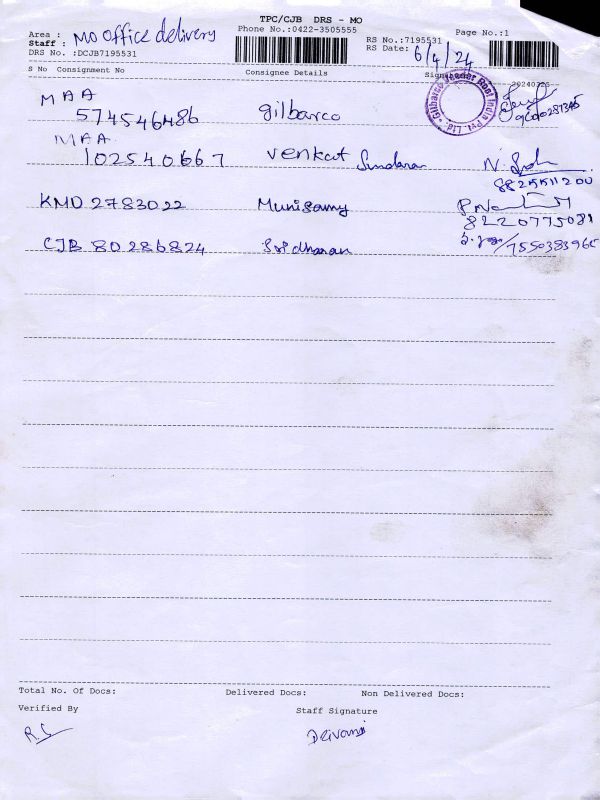 TPC/CJB DRS - MO
Area : MO office delivery
Phone No.:0422-3505555
RS No.:7195531
Page No.:1
Staff :
DRS No. :DCJB7195531
RS Date: 6/4/24
S No Consignment No Consignee Details Signature
20240326
MAA
574546486 gilbarco
Gilbarco Veeder Root India Pvt. Ltd.
MAA
102540667 venkat Sundaran
8825511200
KMD 2783022 Munisamy
8220775081
CJB 80286824 Sridharan
7550383965
Total No. Of Docs: Delivered Docs: Non Delivered Docs:
Verified By Staff Signature